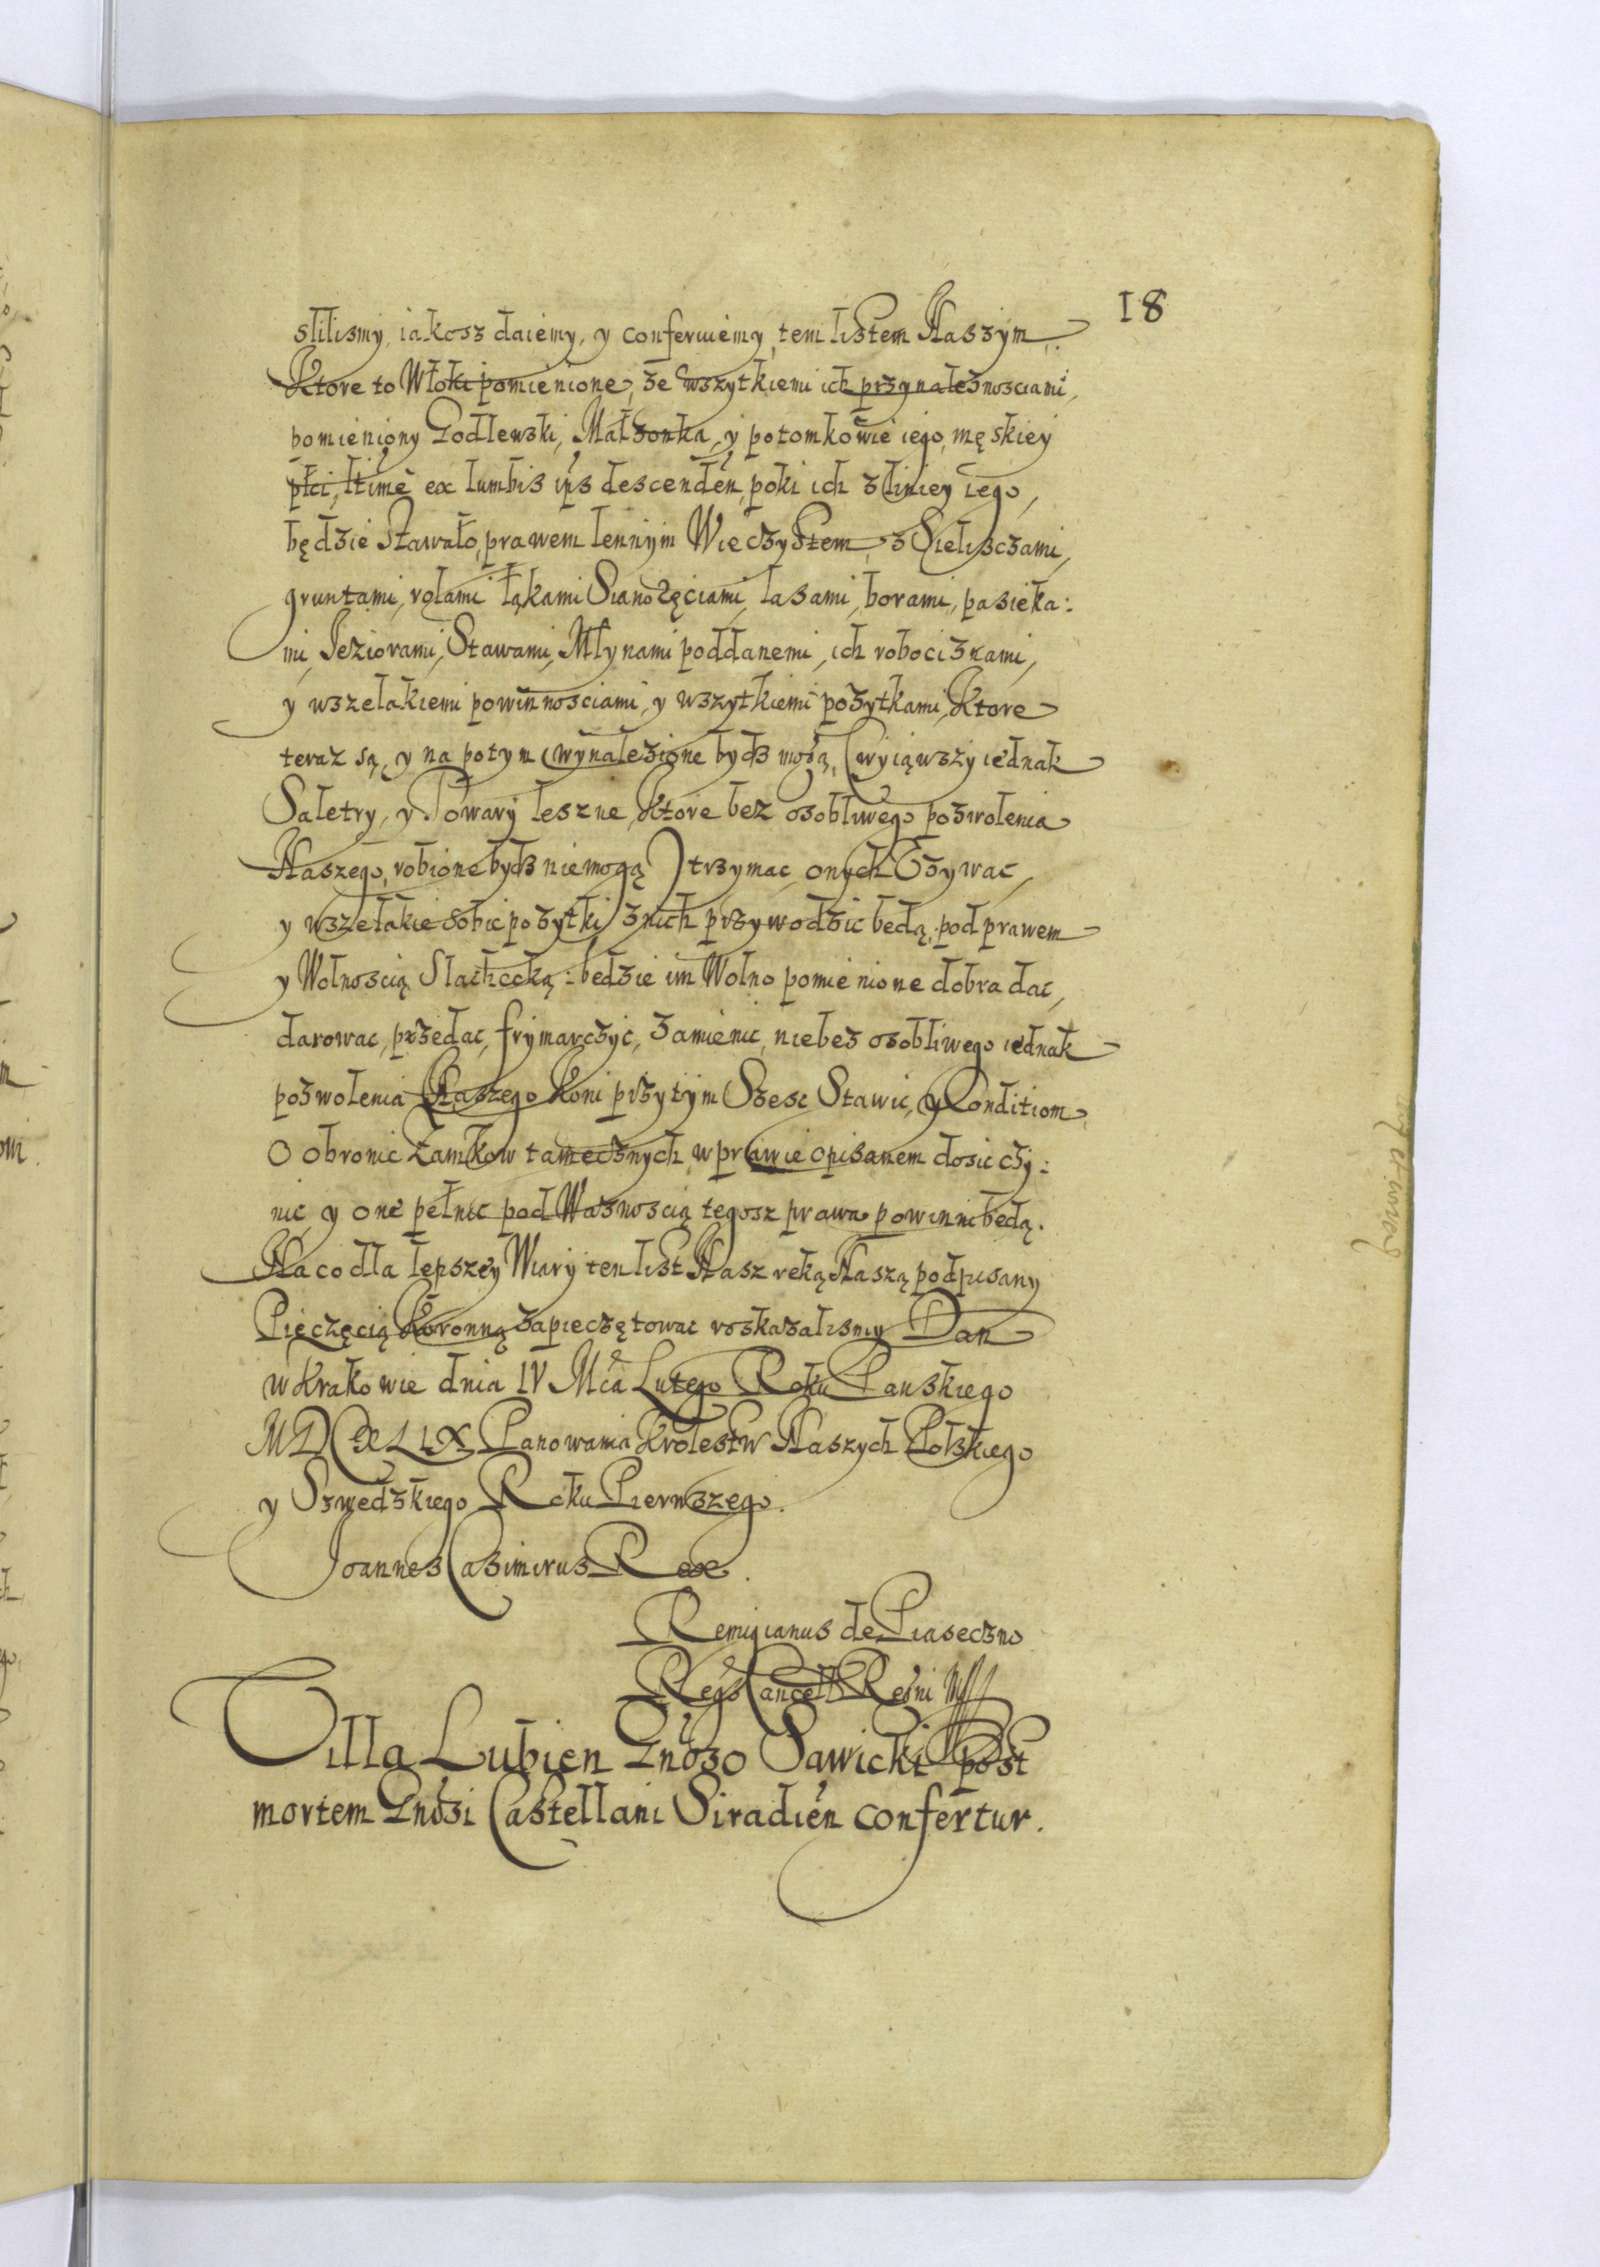 18
slilismy, iakosz daiemy, y conferuiemy, tem listem Naszym.
Ktore to Włoki pomienione, ze wszytkiemi ich przynależnosciami,
pomieniony Godlewski, Małżonka, y potomkowie iego, męskiey
płci, ltime ex lumbis ips descenden, poki ich z liniey iego,
będzie stawało, prawem lennym Wieczystem, z Sieliszczami,
gruntami, rolami łąkami Sianożęciami, lasami, borami, pasieka:
mi, Jeziorami, Stawami, Młynami poddanemi, ich robociznami,
y wszelakiemi powinnosciami, y wszytkiemi pożytkami, Ktore
teraz są, y na potym wynalezione bydź mogą, (wyiąwszy iednak
Saletry, y Towary leszne, Ktore bez osobliwego pozwolenia
Naszego, robione bydź niemogą) trzymac, onych Uzywac,
y wszelakie sobie pożytki z nich przywodzic bedą, pod prawem
y Wolnoscią Slachecką: bedzie im Wolno pomienione dobra dac,
darowac, przedac, frymarczyc, zamienic, niebez osobliwego iednak
pozwolenia Naszego Koni przytym Szesc Stawic, y Conditiom
O obronie Zamkow tamecznych, w prawie opisanem dosic czy:
nic, y one pełnic pod Waznoscią tegosz prawa powinni bedą.
Na co dla lepszey Wiary ten list Nasz ręką Naszą podpisany
Pieczęcią Koronną zapieczętowac roskazalismy Dan
w Krakowie dnia IV Mca Lutego Roku Panskiego
MDCXLIX Panowania Krolestw Naszych Polskiego
y Szwedzkiego Roku Pierwszego.
Joannes Casimirus Rex.
Remigianus de Piaseczno
Regs Cancell Regni
Villa Lubien Gnoso Sawicki post
mortem Gnosi Castellani Siradien confertur.